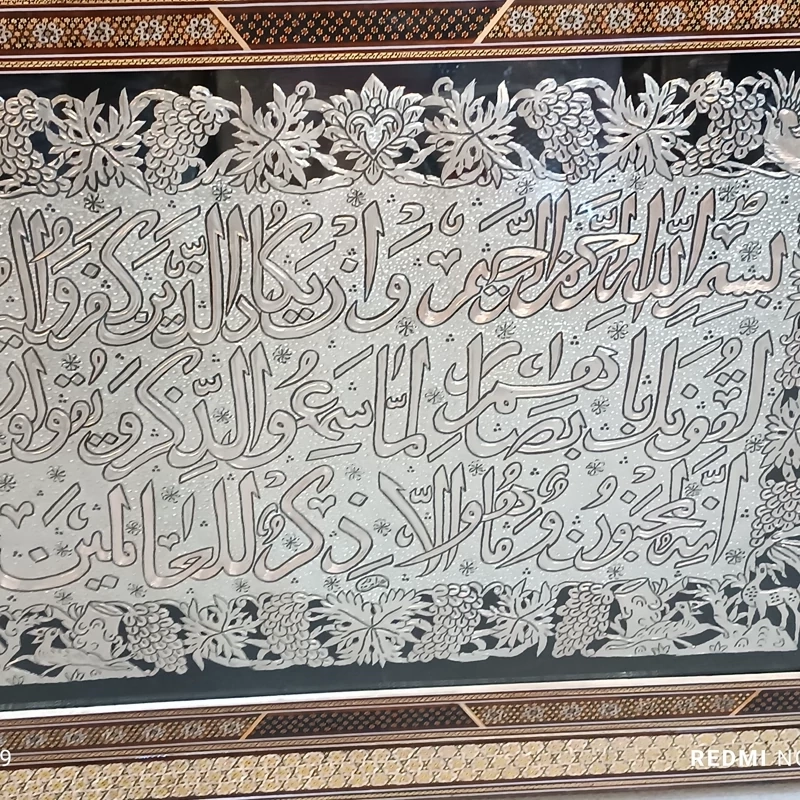 بسم الله الرحمن الرحيم وان يكاد الذين كفروا
ليزلقونك بابصارهم لما سمعوا الذكر ويقولون
انه لمجنون وما هو الا ذكر للعالمين
9
REDMI NO